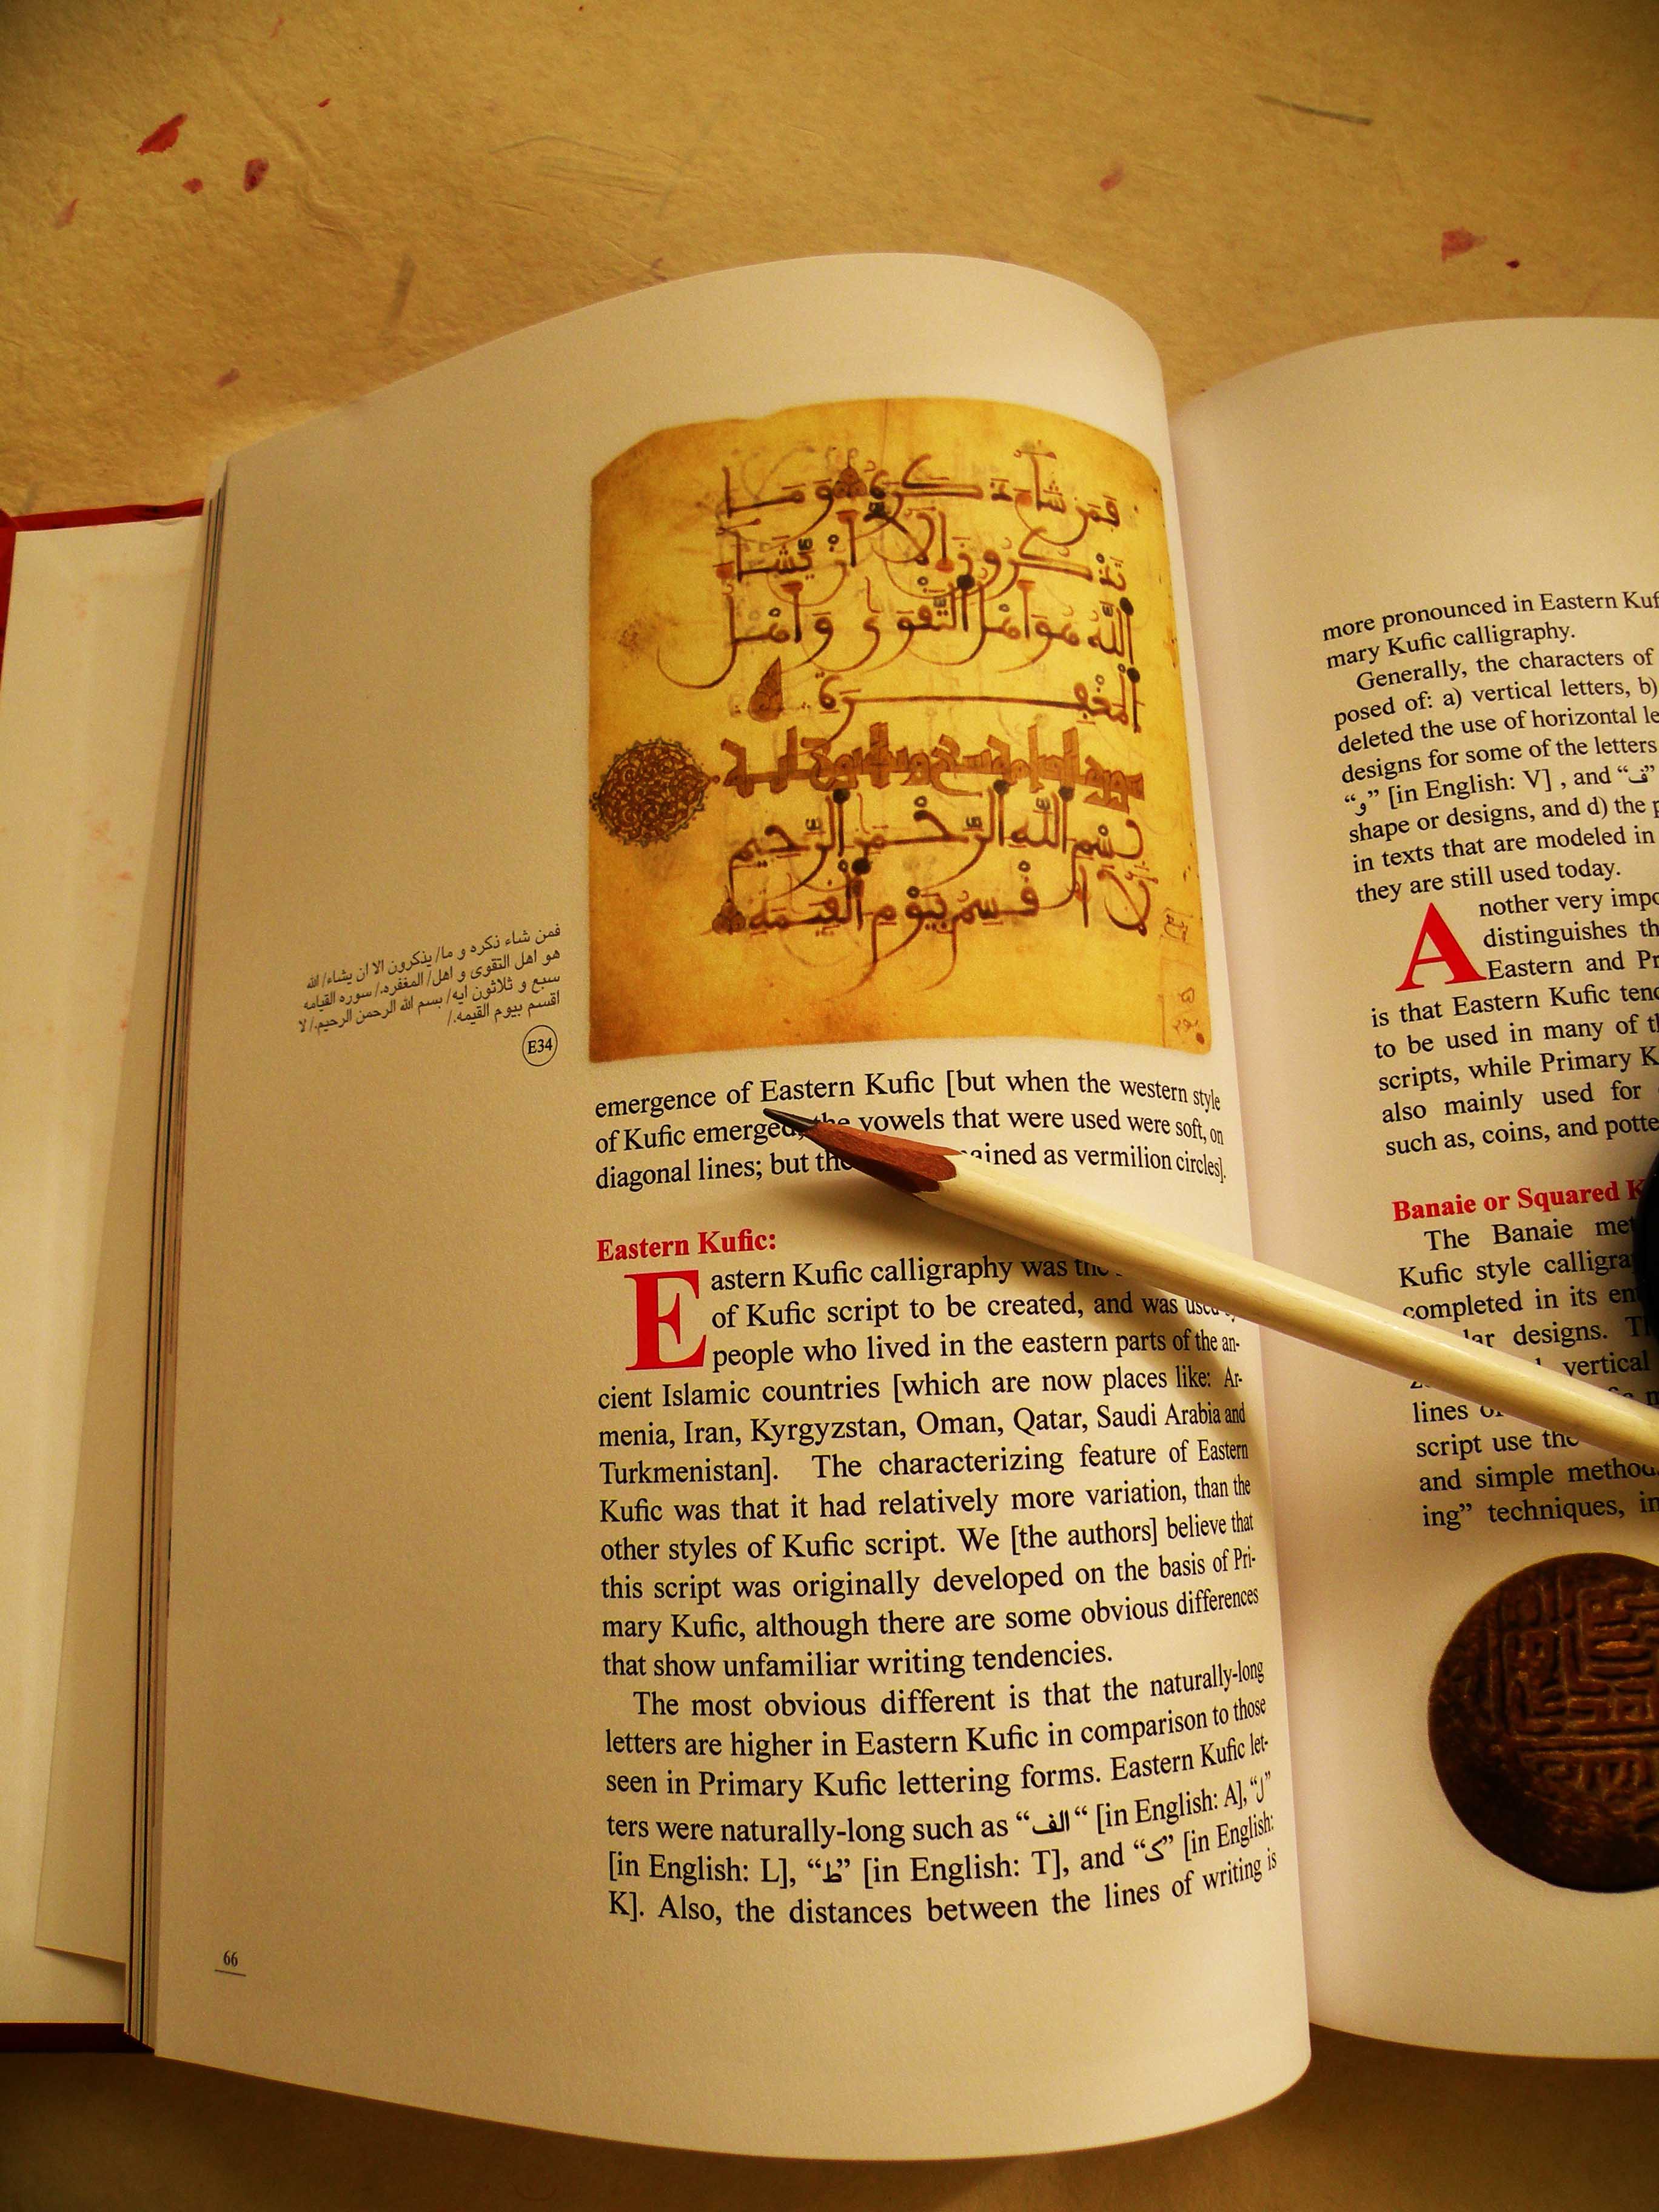 فمن شاء ذكره و ما
يذكرون الا ان يشاء
الله هو اهل التقوى و اهل
المغفرة
بسم الله الرحمن الرحيم
لا اقسم بيوم القيمة
فمن شاء ذكره و ما/ يذكرون الا ان يشاء/ الله
هو اهل التقوى و اهل/ المغفره./ سوره القيامه
سبع و ثلاثون ايه/ بسم الله الرحمن الرحيم./ لا
اقسم بيوم القيمه./
E34
emergence of Eastern Kufic [but when the western style
of Kufic emerged, the vowels that were used were soft, on
diagonal lines; but the as vermilion circles].
Eastern Kufic:
Eastern Kufic calligraphy was the
of Kufic script to be created, and was used
people who lived in the eastern parts of the an-
cient Islamic countries [which are now places like: Ar-
menia, Iran, Kyrgyzstan, Oman, Qatar, Saudi Arabia and
Turkmenistan]. The characterizing feature of Eastern
Kufic was that it had relatively more variation, than the
other styles of Kufic script. We [the authors] believe that
this script was originally developed on the basis of Pri-
mary Kufic, although there are some obvious differences
that show unfamiliar writing tendencies.
The most obvious different is that the naturally-long
letters are higher in Eastern Kufic in comparison to those
seen in Primary Kufic lettering forms. Eastern Kufic let-
ters were naturally-long such as “الف“ [in English: A], “ل”
[in English: L], “ط” [in English: T], and “ک” [in English:
K]. Also, the distances between the lines of writing is
66
more pronounced in Eastern Kuf
mary Kufic calligraphy.
Generally, the characters of
posed of: a) vertical letters, b)
deleted the use of horizontal le
designs for some of the letters
“و” [in English: V] , and “ف”
shape or designs, and d) the p
in texts that are modeled in
they are still used today.
Another very impo
distinguishes th
Eastern and Pr
is that Eastern Kufic tend
to be used in many of th
scripts, while Primary K
also mainly used for
such as, coins, and potte
Banaie or Squared K
The Banaie met
Kufic style calligra
completed in its en
designs. T
vertical
lines
script use the
and simple method
ing” techniques, in